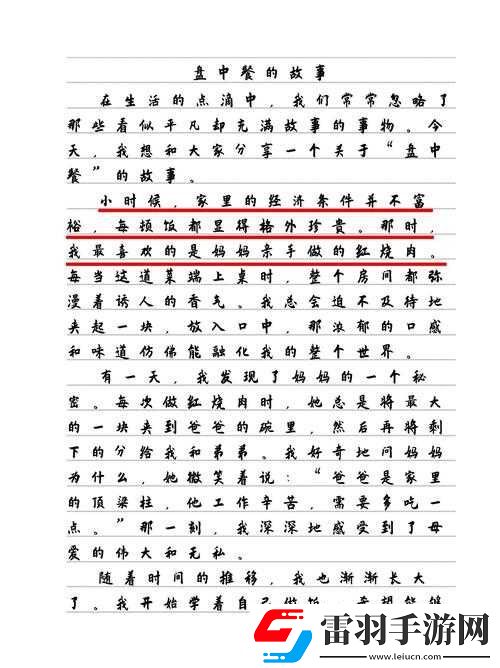 盘中餐的故事
在生活的点滴中，我们常常忽略了
那些看似平凡却充满故事的事物。今
天，我想和大家分享一个关于“盘中
餐”的故事。
小时候，家里的经济条件并不富
裕，每顿饭都显得格外珍贵。那时，
我最喜欢的是妈妈亲手做的红烧肉。
每当这道菜端上桌时，整个房间都弥
漫着诱人的香气。我总会迫不及待地
夹起一块，放入口中，那浓郁的口感
和味道仿佛能融化我的整个世界。
有一天，我发现了妈妈的一个秘
密。每次做红烧肉时，她总是将最大
的一块夹到爸爸的碗里，然后再将剩
下的分给我和弟弟。我好奇地问妈妈
为什么，她微笑着说：“爸爸是家里
的顶梁柱，他工作辛苦，需要多吃一
点。”那一刻，我深深地感受到了母
爱的伟大和无私。
随着时间的推移，我也渐渐长大
了。我开始学着自己做饭，希望能够
雷羽手游网
www.leiucn.com